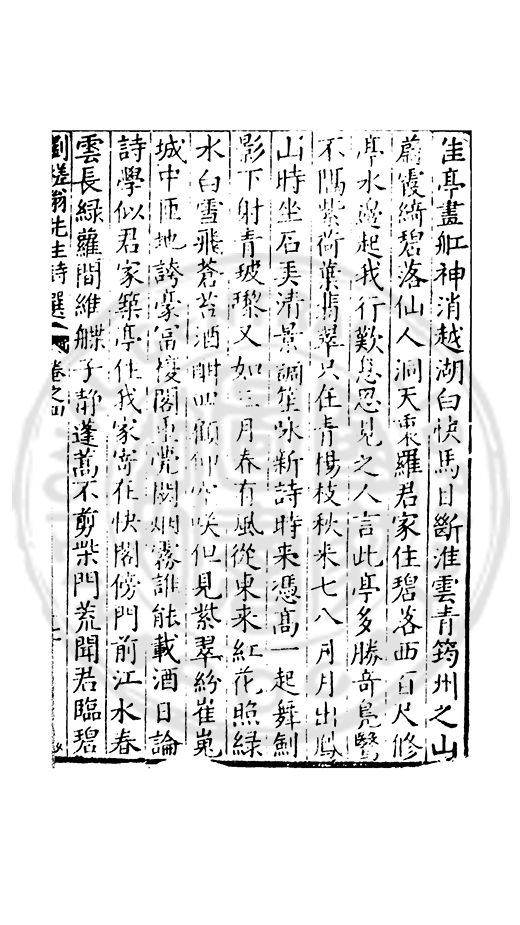 佳亭畫舡神消越湖白快馬目斷淮雲青筠州之山
蔚霞綺碧落仙人洞天東羅君家住碧落西百尺修
亭水邊起我行歎息忽見之人言此亭多勝竒鳧鷖
不隔紫荷葉翡翠只在青楊枝秋来七八月月出鳳
山時坐石弄清景調笙咏新詩時来憑髙一起舞劍
影下射青玻瓈又如三月春有風從東来紅花照緑
水白雪飛蒼苔酒酣四顧仰空咲但見紫翠紛崔嵬
城中匝地誇豪富樓閣重甍闕烟霧誰能載酒日論
詩學似君家築亭住我家寄在快閣傍門前江水春
雲長緑蘿間維艓子静蓬蒿不剪柴門荒聞君臨碧
劉槎翁先生詩選 卷之四